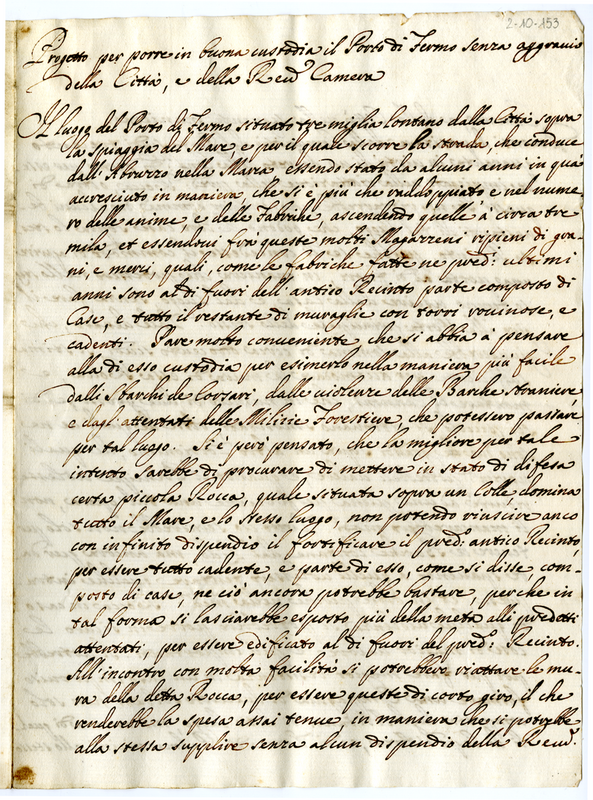 2-10-153
Progetto per porre in buona custodia il Porto di Fermo senza aggravio
della Città, e della Revᵈ Camera
Il luogo del Porto di Fermo situato tre miglia lontano dalla Città sopra
la spiaggia del Mare, e per il quale scorre la strada, che conduce
dall'Abruzzo nella Marca essendo stato da alcuni anni in quà
accresciuto in maniera che si è più che raddoppiato, e nel nume-
ro delle anime, e delle Fabriche, ascendendo quelle à circa tre
mila, et essendoui frà queste molti Magazzeni ripieni di gra-
ni, e merci, quali, come le fabriche fatte ne pred: ultimi
anni sono al di fuori dell'antico Recinto parte composto di
Case, e tutto il restante di muraglie con torri rouinose, e
cadenti. Pare molto conueniente che si abbia à pensare
alla di esso custodia per esimerlo nella maniera più facile
dalli sbarchi de Corsari, dalle uiolenze delle Barche straniere,
e dagl'attentati delle Milizie Forestiere, che potessero passare
per tal luogo. Si è però pensato, che la migliore per tale
intento sarebbe di procurare di mettere in stato di difesa
certa piccola Rocca, quale situata sopra un Colle, domina
tutto il Mare, e lo stesso luogo, non potendo riuscire anco
con infinito dispendio il fortificare il pred: antico Recinto,
per essere tutto cadente, e parte di esso, come si disse, com-
posto di case, ne ciò ancora potrebbe bastare, perche in
tal forma si lasciarebbe esposto più della metà alli predetti
attentati, per essere edificato al di fuori del pred: Recinto.
All'incontro con molta facilità si potrebbero riattare le mu-
ra della detta Rocca, per essere queste di corto giro, il che
renderebbe la spesa assai tenue, in maniera che si potrebbe
alla stessa supplire senza alcun dispendio della Revᵈ.